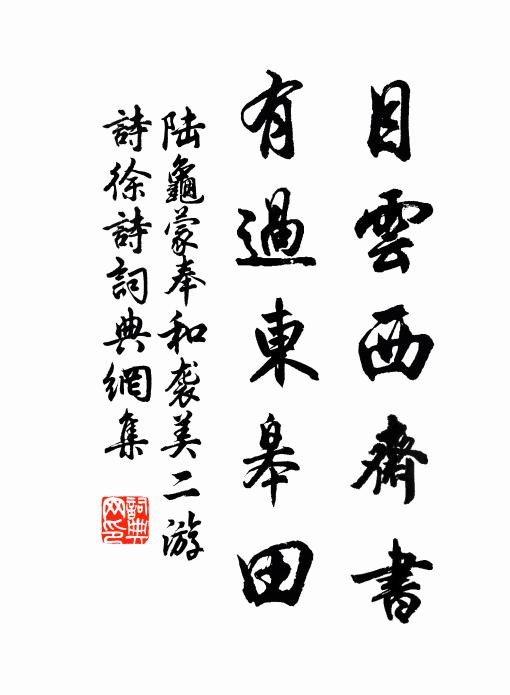 目雲西齋書
有過東皋田
陸龜蒙奉和袭美二游
詩徐詩詞典網集
詞典網印